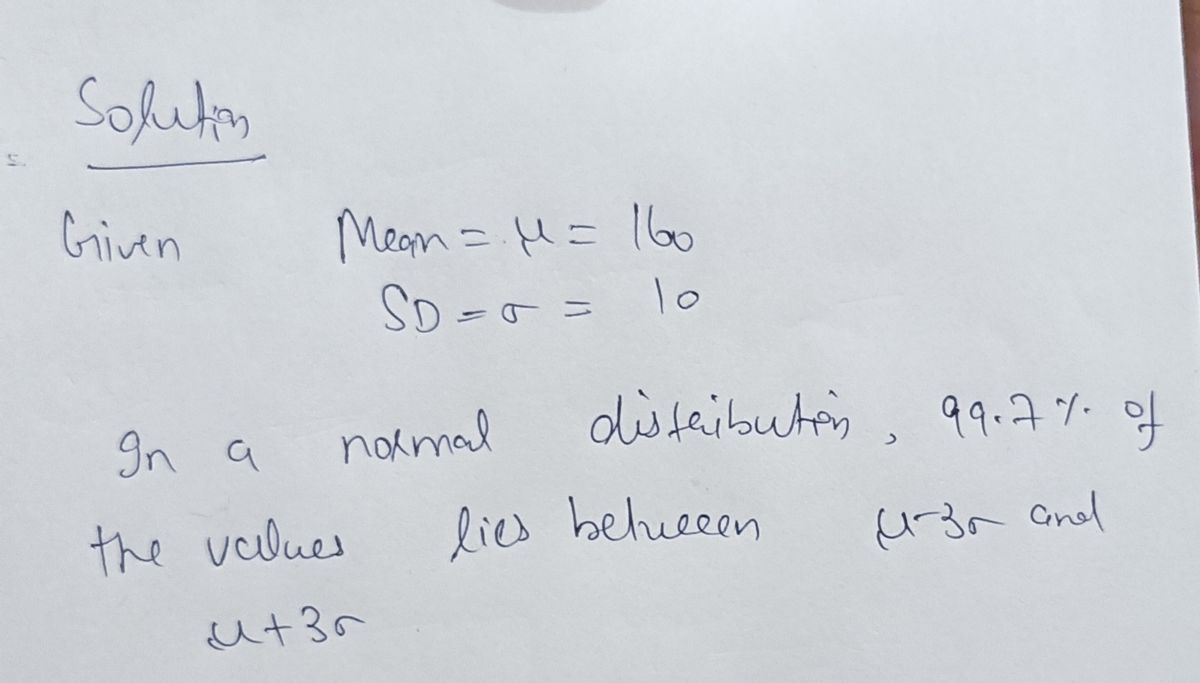 Solution
Given Mean = μ = 160
SD = σ = 10
In a normal distribution, 99.7% of
the values lies between μ-3σ and
μ+3σ